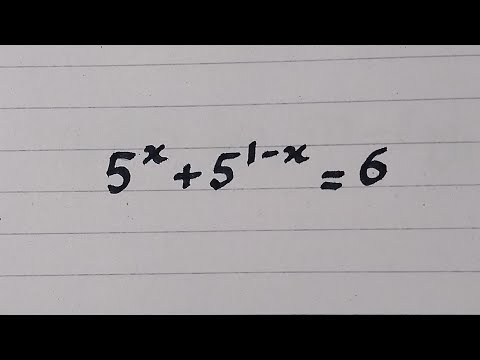 5^x + 5^{1-x} = 6